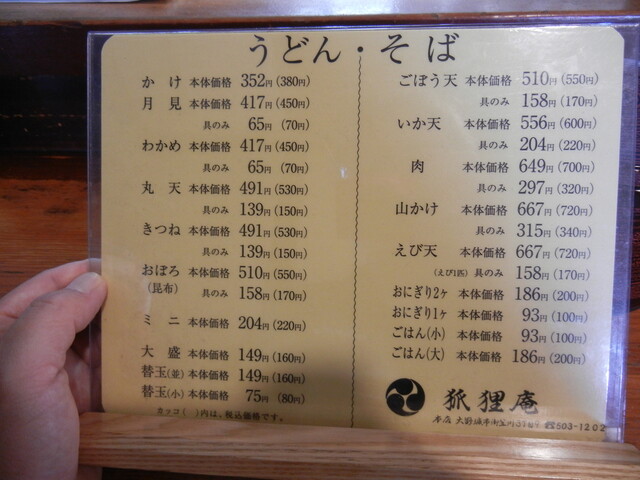 うどん・そば
かけ 本体価格 352円(380円)
月見 本体価格 417円(450円)
具のみ 65円(70円)
わかめ 本体価格 417円(450円)
具のみ 65円(70円)
丸天 本体価格 491円(530円)
具のみ 139円(150円)
きつね 本体価格 491円(530円)
具のみ 139円(150円)
おぼろ 本体価格 510円(550円)
(昆布) 具のみ 158円(170円)
ミニ 本体価格 204円(220円)
大盛 本体価格 149円(160円)
替玉(並) 本体価格 149円(160円)
替玉(小) 本体価格 75円(80円)
カッコ( )内は、税込価格です。
ごぼう天 本体価格 510円(550円)
具のみ 158円(170円)
いか天 本体価格 556円(600円)
具のみ 204円(220円)
肉 本体価格 649円(700円)
具のみ 297円(320円)
山かけ 本体価格 667円(720円)
具のみ 315円(340円)
えび天 本体価格 667円(720円)
(えび1匹) 具のみ 158円(170円)
おにぎり2ヶ 本体価格 186円(200円)
おにぎり1ヶ 本体価格 93円(100円)
ごはん(小) 本体価格 93円(100円)
ごはん(大) 本体価格 186円(200円)
狐狸庵
本店 大野城市 ☎503-1202